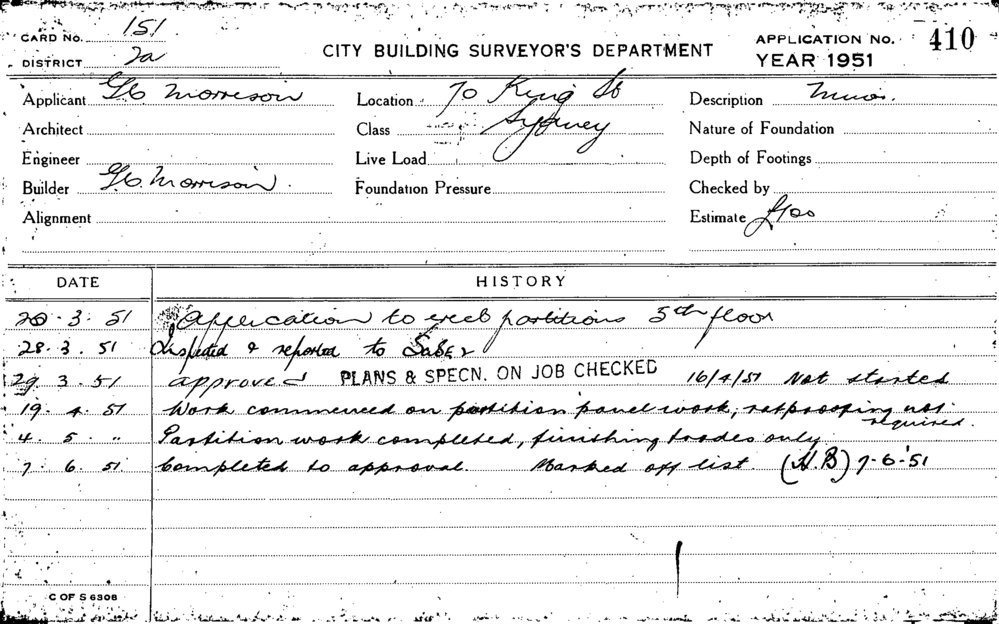 CARD No. 151
DISTRICT 2a
CITY BUILDING SURVEYOR'S DEPARTMENT
APPLICATION No. 410
YEAR 1951
Applicant G.C. Morrison
Location 70 King St
Sydney
Description Minor
Architect
Class
Nature of Foundation
Engineer
Live Load
Depth of Footings
Builder G.C. Morrison.
Foundation Pressure
Checked by
Alignment
Estimate £100
DATE HISTORY
20.3.51 Application to erect partitions 5th floor
28.3.51 Inspected & reported to
29.3.51 approved PLANS & SPECN. ON JOB CHECKED 16/4/51 Not started
19.4.51 Work commenced on partition panel work, ratproofing not required.
4.5. " Partition work completed, finishing trades only
7.6.51 Completed to approval. Marked off list. (H.B) 7-6-'51
C OF S 6308